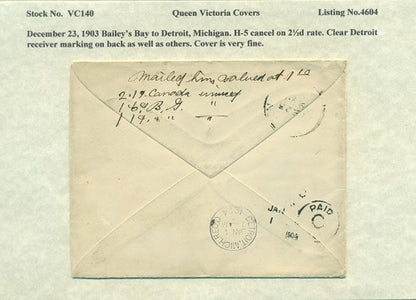 Stock No. VC140 Queen Victoria Covers Listing No.4604
December 23, 1903 Bailey's Bay to Detroit, Michigan. H-5 cancel on 2½d rate. Clear Detroit
receiver marking on back as well as others. Cover is very fine.
Mailed him, valued at 1
2. 1 Canada
1 6d B. G. "
1 1 " "
PAID
C
JAN
1
1904
DETROIT, MICH.
JAN 1